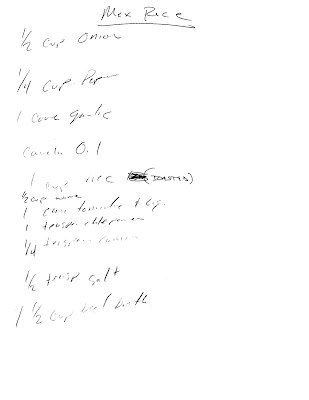 Mex Rice
1/2 cup Onion
1/4 cup Pepper
1 clove garlic
Canola O. 1
1 cup rice (TOASTED)
1/2 cup
1 can tomato + liq.
1 teaspoon
1/4 teaspoon cumin
1/2 teasp salt
1 1/2 cup beef broth